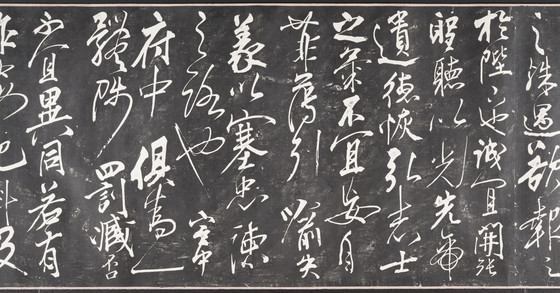 之殊遇欲報之
於陛下也誠宜開張
聖聽以光先帝
遺德恢弘志士
之氣不宜妄自
菲薄引喻失
義以塞忠諫
之路也宮中
府中俱為一
體陟罰臧否
不宜異同若有
科及